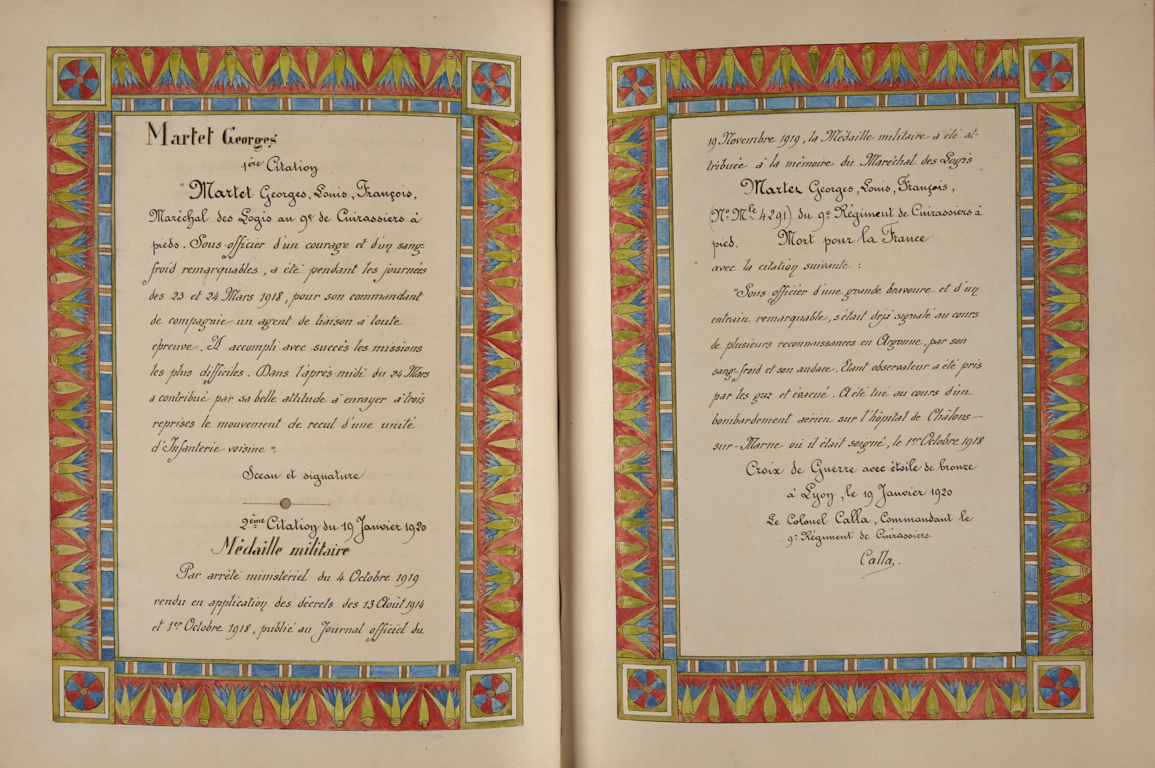 Martet Georges
1ère Citation
"Martet Georges, Louis, François,
Maréchal des Logis au 9e de Cuirassiers à
pieds. Sous-officier d'un courage et d'un sang-
froid remarquables, a été pendant les journées
des 23 et 24 Mars 1918, pour son commandant
de compagnie un agent de liaison à toute
épreuve. A accompli avec succès les missions
les plus difficiles. Dans l'après-midi du 24 Mars
a contribué par sa belle attitude à enrayer à trois
reprises le mouvement de recul d'une unité
d'Infanterie voisine".
Sceau et signature
2ème Citation du 19 Janvier 1920
Médaille militaire
Par arrêté ministériel du 4 Octobre 1919
rendu en application des décrets des 13 Août 1914
et 1er Octobre 1918, publié au Journal officiel du
19 Novembre 1919, la Médaille militaire a été at-
tribuée à la mémoire du Maréchal des Logis
Martet Georges, Louis, François,
(No Mle 4291) du 9e Régiment de Cuirassiers à
pied. Mort pour la France
avec la citation suivante :
"Sous officier d'une grande bravoure et d'un
entrain remarquable, s'était déjà signalé au cours
de plusieurs reconnaissances en Argonne, par son
sang-froid et son audace. Etant observateur a été pris
par les gaz et évacué. A été tué au cours d'un
bombardement aérien sur l'hôpital de Châlons-
sur-Marne où il était soigné, le 1er Octobre 1918
Croix de Guerre avec étoile de bronze
à Lyon, le 19 Janvier 1920
Le Colonel Calla, Commandant le
9e Régiment de Cuirassiers.
Calla.